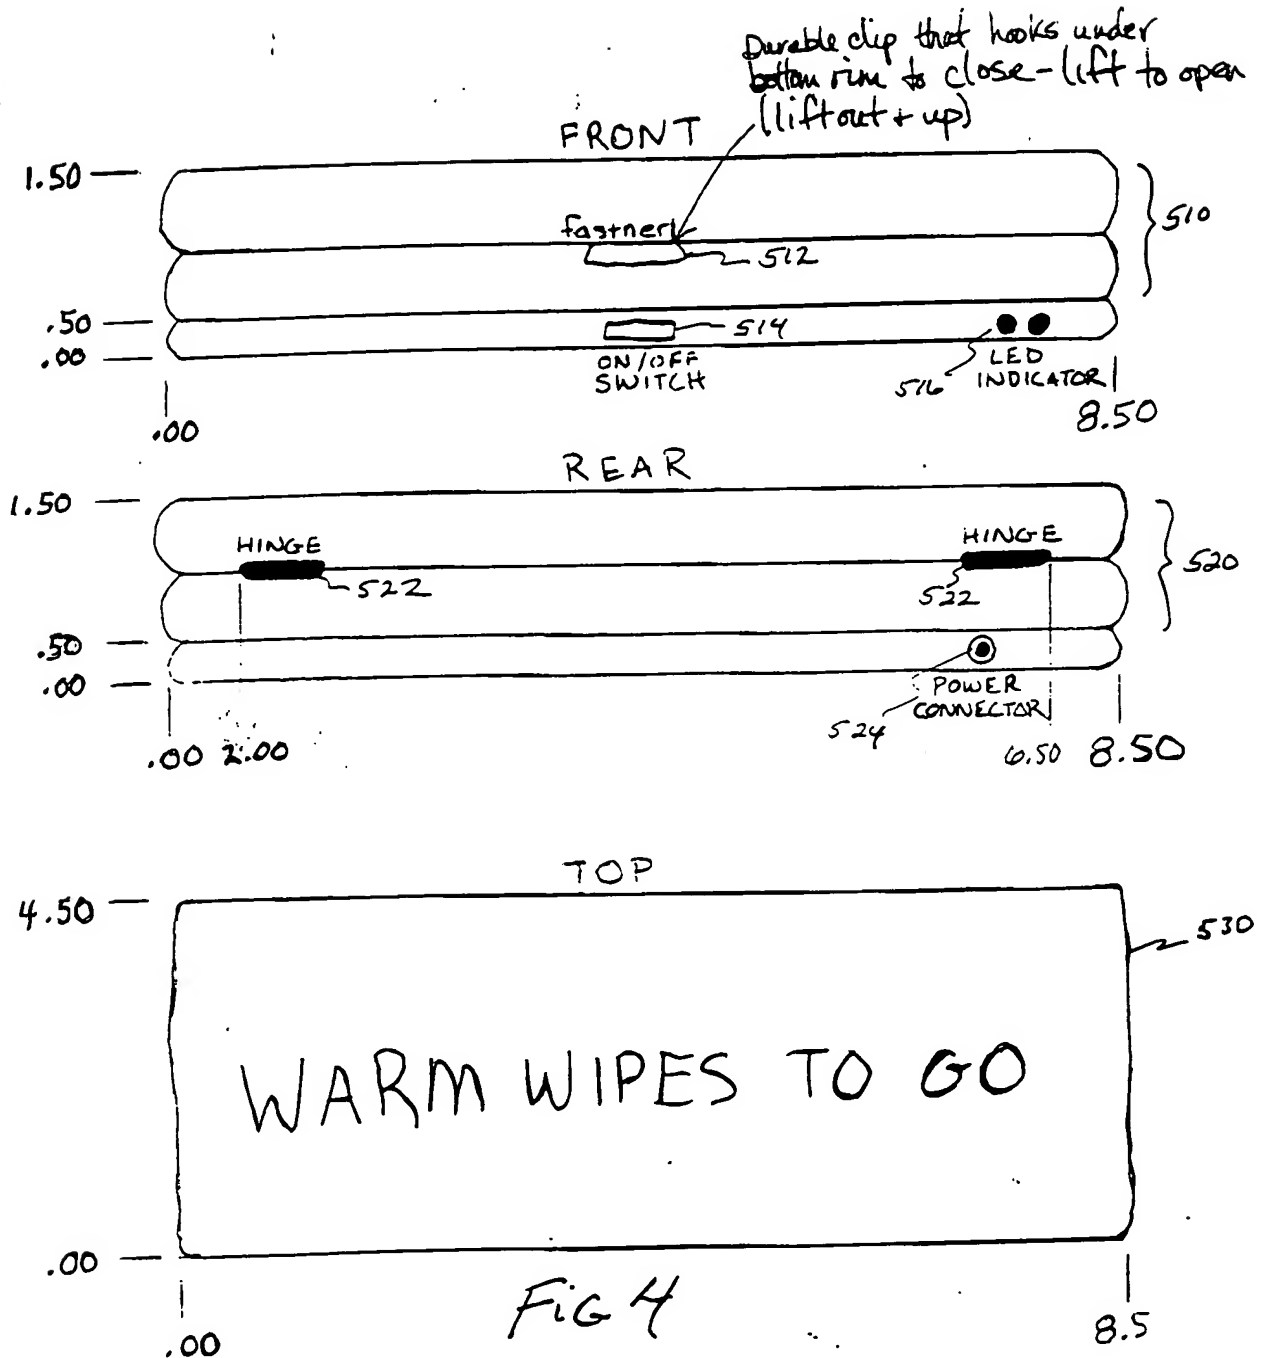 Durable clip that hooks under
bottom rim to close - lift to open
(lift out + up)
FRONT
1.50
fastner
510
512
.50
514
.00
ON/OFF
SWITCH
516
LED
INDICATOR
.00
8.50
REAR
1.50
HINGE
HINGE
520
522
522
.50
.00
POWER
CONNECTOR
524
.00 2.00
6.50 8.50
TOP
4.50
530
WARM WIPES TO GO
.00
FIG 4
.00
8.5